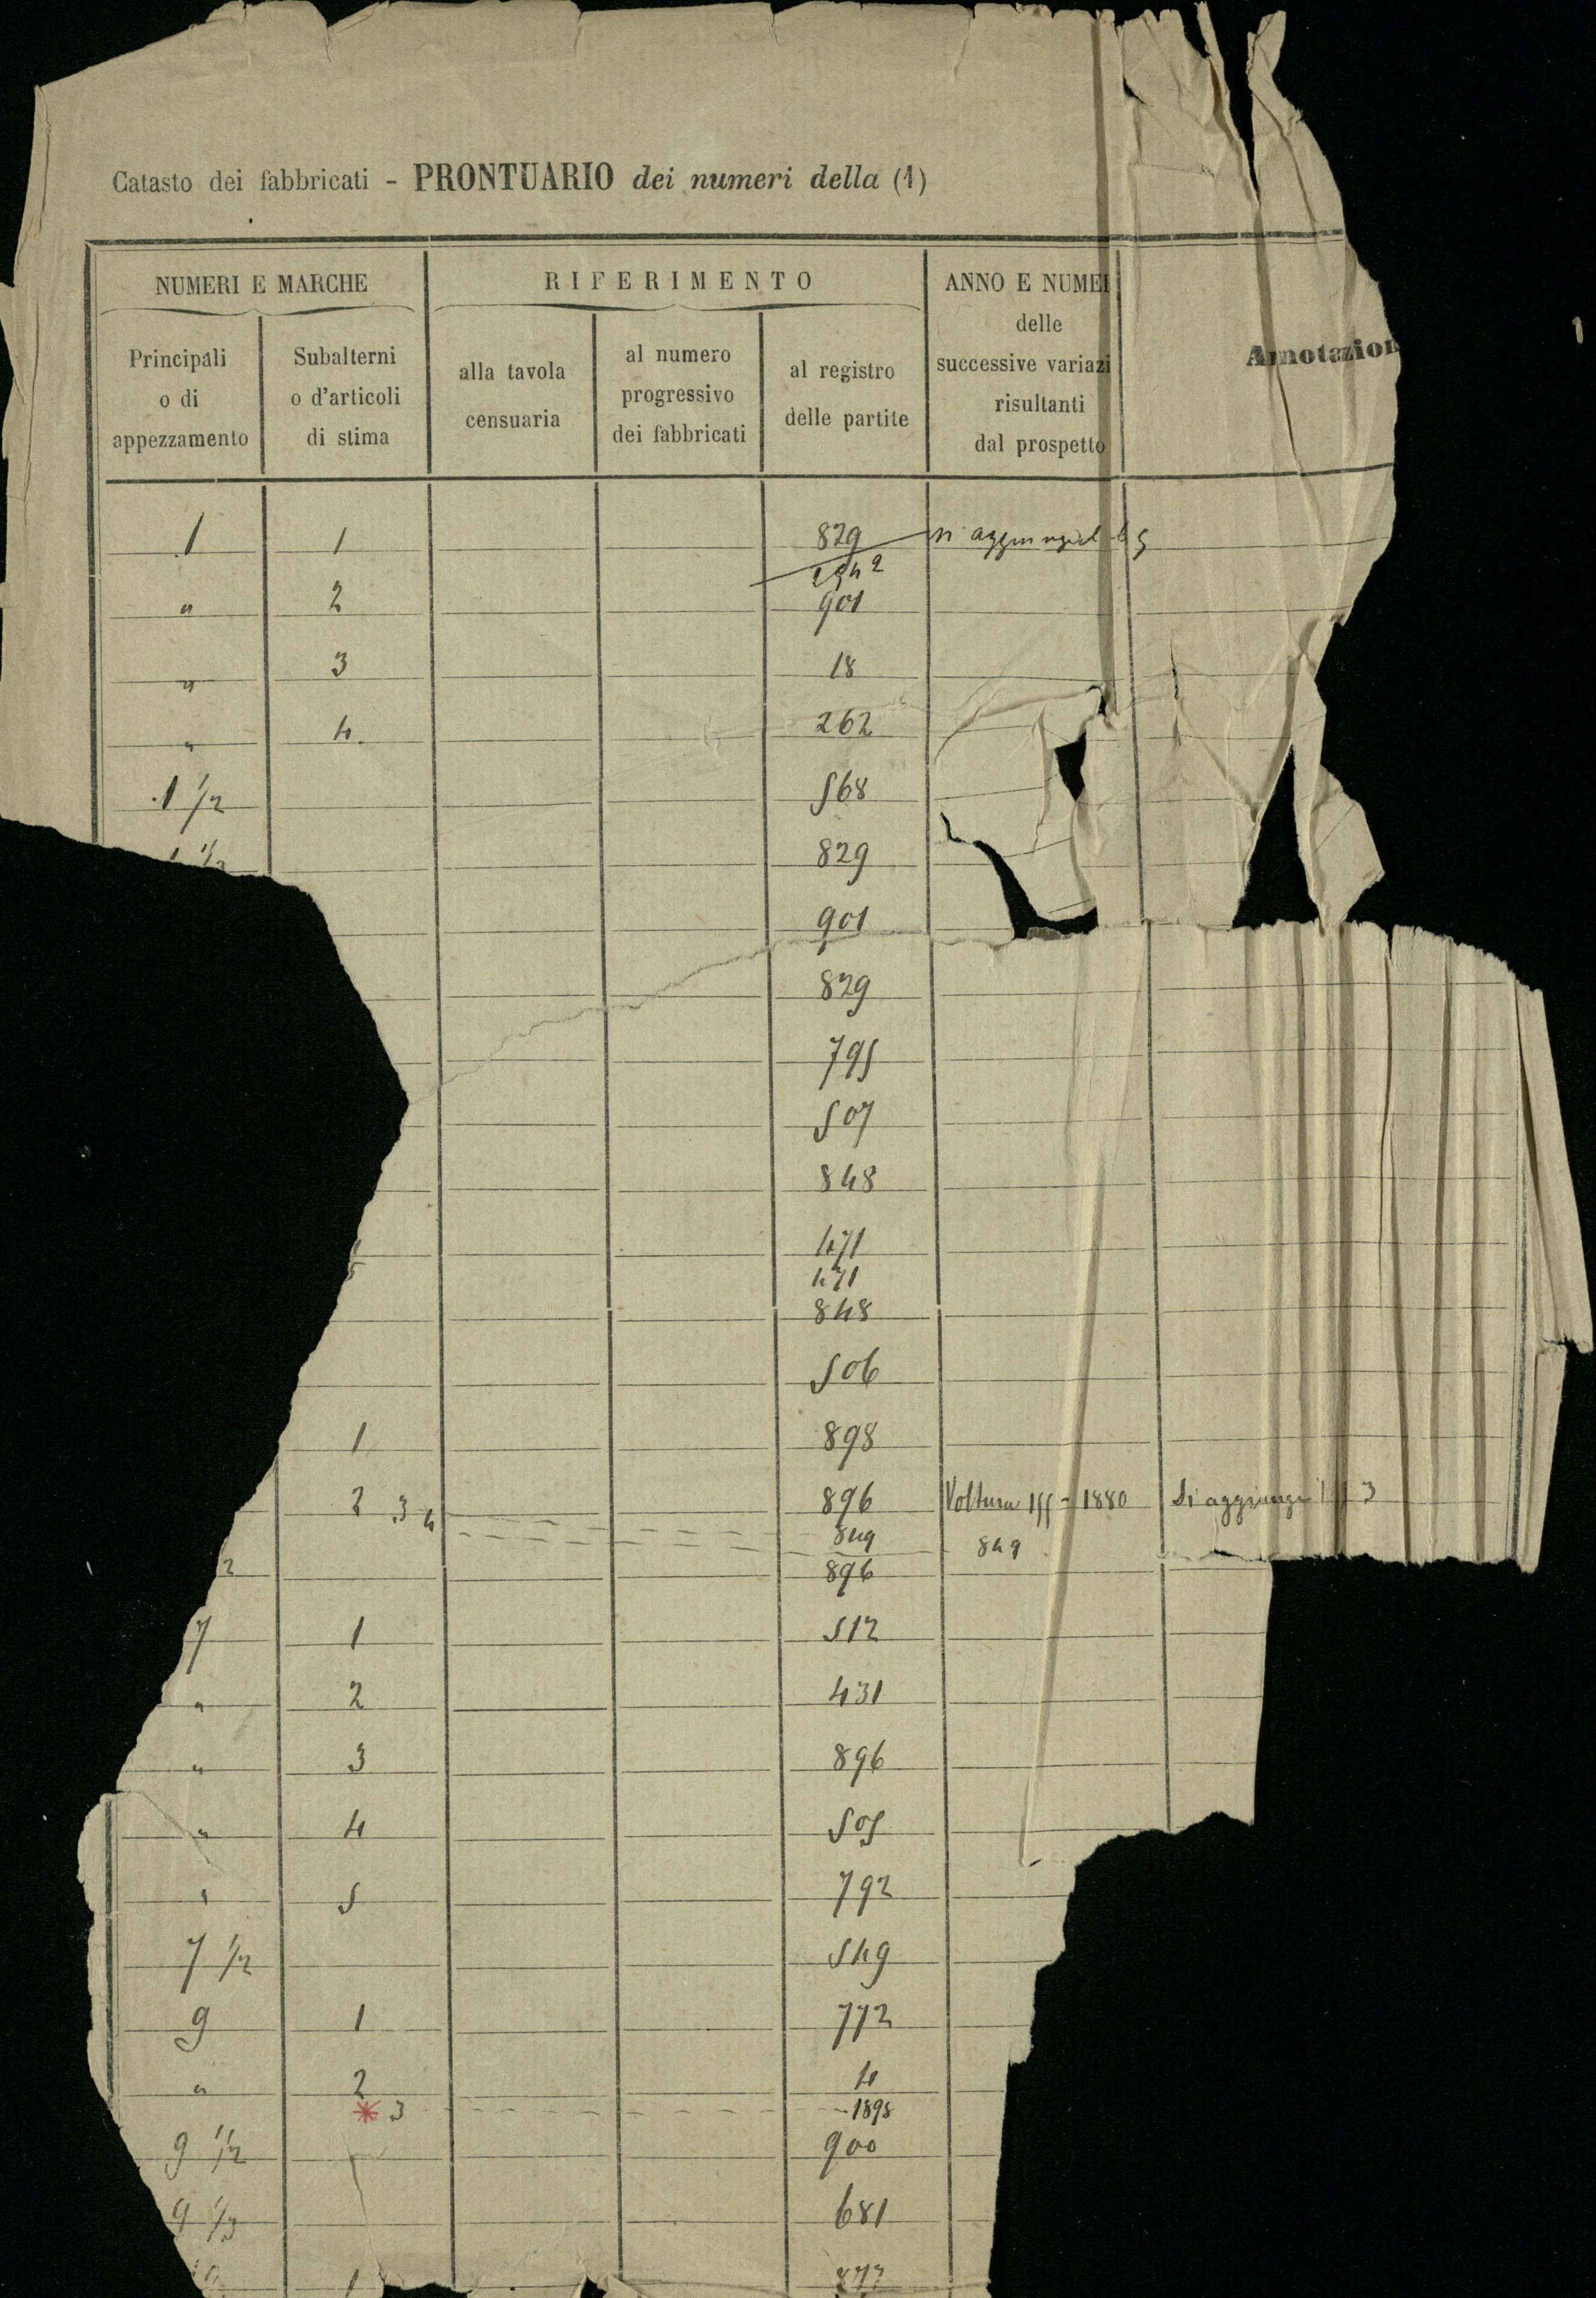 Catasto dei fabbricati - PRONTUARIO dei numeri della (1)
NUMERI E MARCHE
RIFERIMENTO
ANNO E NUMEI
delle
successive variazi
risultanti
dal prospetto
Annotazion
Principali
o di
appezzamento
Subalterni
o d'articoli
di stima
alla tavola
censuaria
al numero
progressivo
dei fabbricati
al registro
delle partite
1 1 829 si
" 2 901
" 3 18
" 4. 262
1 1/2 568
829
901
829
795
507
848
471
471
848
506
1 898
2 3 4 896 Voltura 155 - 1880 Si aggiunge 3
849 849
2 896
7 1 512
" 2 431
" 3 896
" 4 505
" 5 792
7 1/2 549
9 1 772
" 2 4
* 3 1898
9 1/2 900
9 1/3 681
1